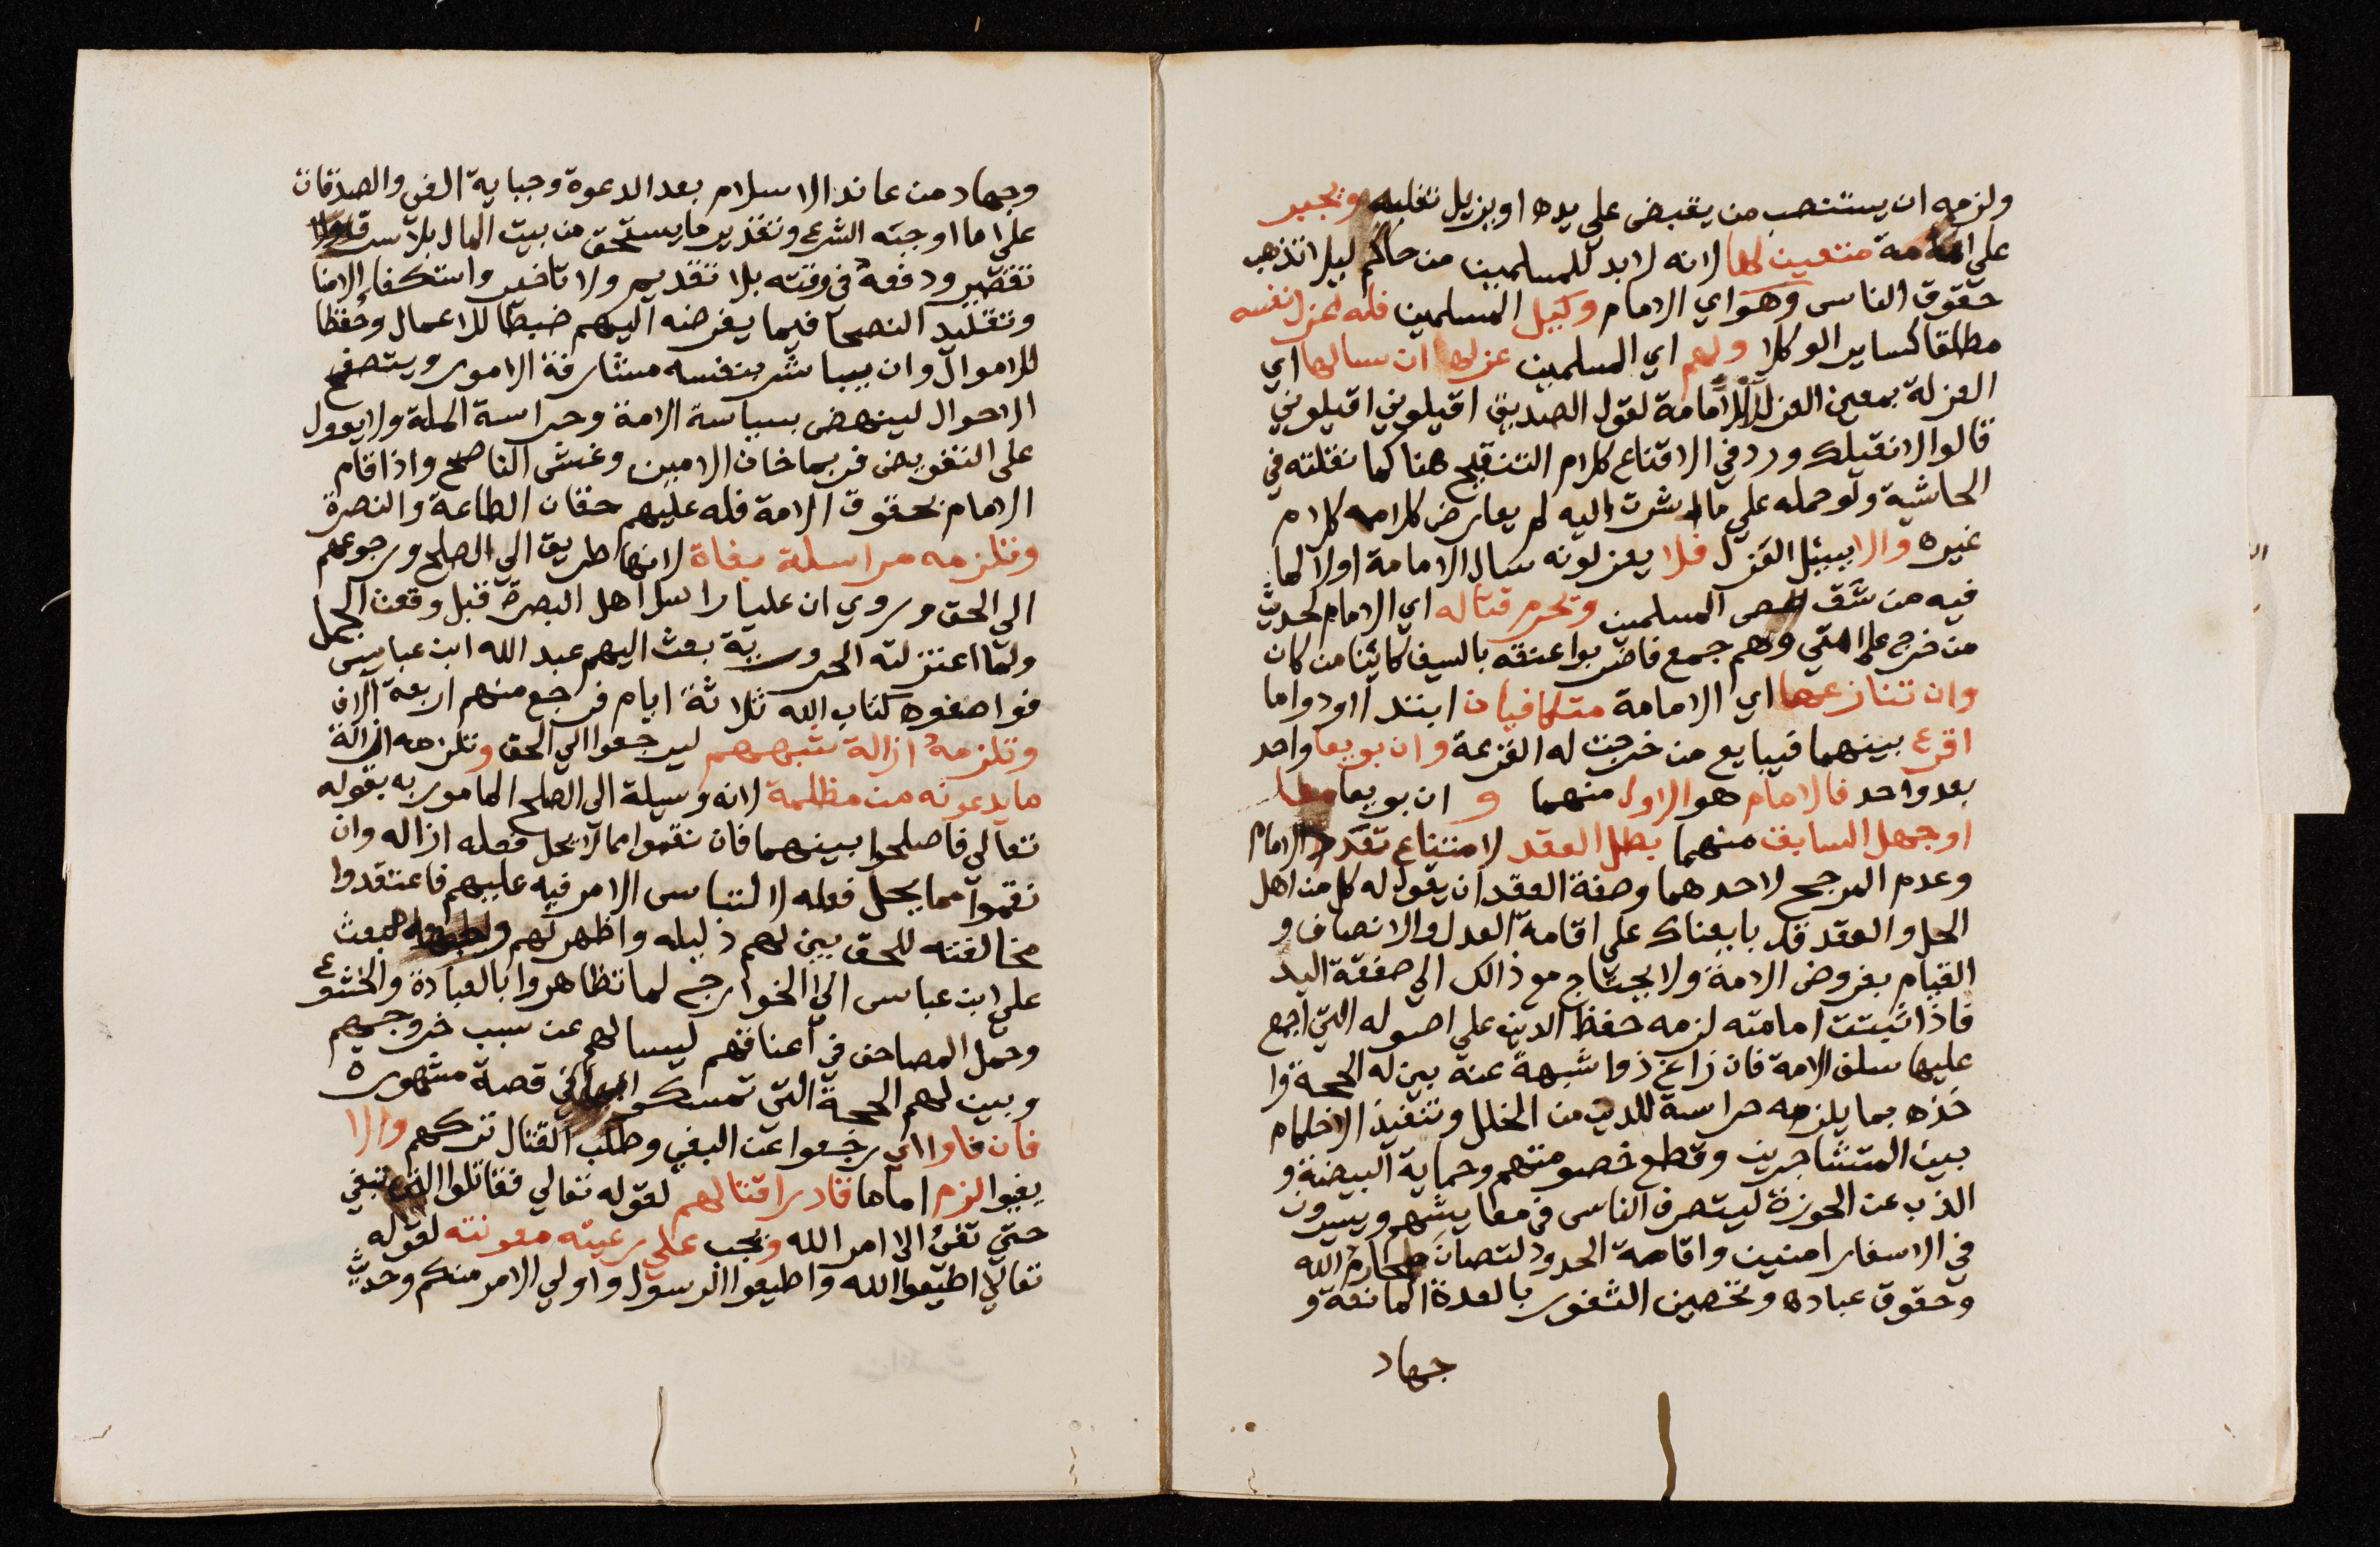 ولزمه ان يستنصب من يقبض علي يده او يزيل تغلبه ويجبر
علي امامة متعين لها لانه لا بد للمسلمين من حاكم ليلا تذهب
حقوق الناس وهو اي الامام وكيل المسلمين فله عزل نفسه
مطلقا كساير الوكلا ولهم اي المسلمين عزله ان سالها اي
العزلة بمعني العزل لا الامامة لقول الصديق اقيلوني اقيلوني
قالوا لا نقيلك ورد في الاقناع كلام التنقيح هنا كما نقلته في
الحاشية ولو حمله علي ما اشرت اليه لم يعارض كلامه كلام
غيره والا يسيل العزل فلا يعزلونه سال الامامة اولا لما
فيه من شق عصي المسلمين ويحرم قتاله اي الامام لحديث
من خرج علي امتي وهم جمع فاضربوا عنقه بالسيف كائنا من كان
وان تنازعها اي الامامة متكافيان ابتداا ودواما
اقرع بينهما فيبايع من خرجت له القرعة وان بويعا واحد
بعد واحد فالامام هو الاول منهما و ان بويعا معا
او جهل السابق منهما بطل العقد لامتناع تعدد الامام
وعدم المرجح لاحدهما وصفة العقد ان يقول له كل من اهل
الحل والعقد قد بايعناك علي اقامة العدل والانصاف و
القيام بفروض الامة ولا يحتاج مع ذالك الي صفقة اليد
فاذا ثبتت امامته لزمه حفظ الدين علي اصوله التي اجمع
عليها سلف الامة فان زاغ ذوا شبهة عنه بين له الحجة وا
خذه بما يلزمه حراسة للدين من الخلل وتنفيذ الاحكام
بين المتشاجرين وقطع خصومتهم وحماية البيضة و
الذب عن الحوزة ليتصرف الناس في معايشهم ويسيرون
في الاسفار امنين واقامة الحدود لتصان محارم الله
وحقوق عباده وتحصين الثغور بالعدة المانعة و
جهاد
وجهاد من عاند الاسلام بعد الدعوة وجباية الفي والصدقات
علي ما اوجبته الشرع وتقدير ما يستحق من بيت المال بلا سرف ولا
تقصير ودفعه في وقته بلا تقديم ولا تاخير واستكفاء الامنا
وتقليد النصحا فيما يفرضه اليهم ضبطا للاعمال وحفظا
للاموال وان يباشر بنفسه مشارفة الامور ويتصفح
الاحوال لينهض بسياسة الامة وحراسة الملة ولا يعول
علي التفويض فربما خان الامين وغش الناصح واذا قام
الامام بحقوق الامة فله عليهم حقان الطاعة والنصرة
وتلزمه مراسلة بغاة لانها طريق الي الصلح ورجوعهم
الي الحق وروي ان عليا راسل اهل البصرة قبل وقعت الجمل
ولما اعتزلته الحرورية بعث اليهم عبد الله ابن عباس
فواضعوه كتاب الله ثلاثة ايام فرجع منهم اربعة الاف
وتلزمه ازالة شبههم ليرجعوا الي الحق وتلزمه ازالة
ما يدعونه من مظلمة لانه وسيلة الي الصلح المامور به بقوله
تعالي فاصلحوا بينهما فان نقموا مما لا يحل فعله ازاله وان
نقموا مما يحل فعله لالتباس الامر فيه عليهم فاعتقدوا
مخالفته للحق بين لهم دليله واظهر لهم وجهه لبعث
علي ابن عباس الي الخوارج لما تظاهروا بالعبادة والخشوع
وحمل المصاحف في اعناقهم ليسالهم عن سبب خروجهم
وبين لهم الحجة التي تمسكوا بها في قصة مشهورة
فان فاوا اي رجعوا عن البغي وطلب القتال تركهم والا
يفيوا لزم اماما قادرا قتالهم لقوله تعالي فقاتلوا التي تبغي
حتي تفئ الي امر الله ويجب علي رعيته معونته لقوله
تعالي اطيعوا الله واطيعوا الرسول واولي الامر منكم وحديث